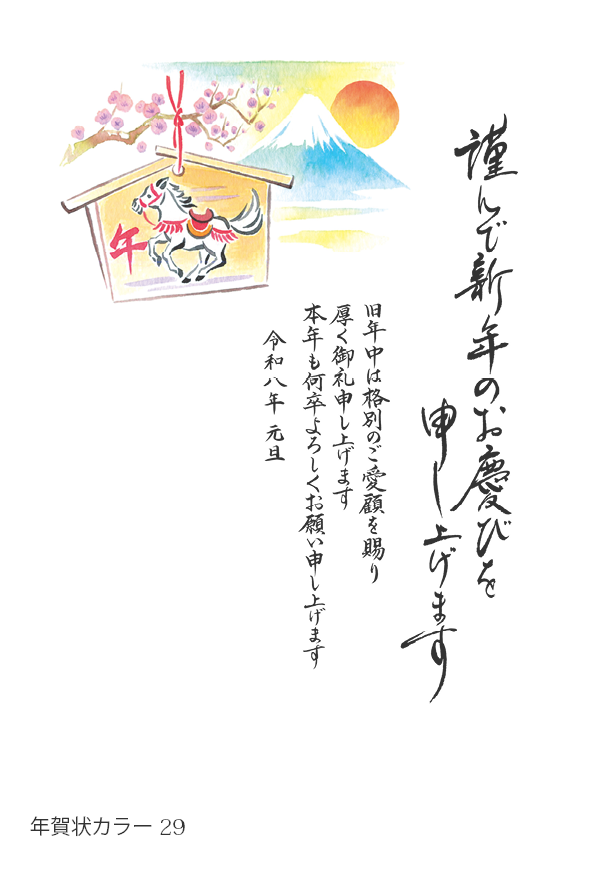 謹んで新年のお慶びを
申し上げます
旧年中は格別のご愛顧を賜り
厚く御礼申し上げます
本年も何卒よろしくお願い申し上げます
令和八年 元旦
午
年賀状カラー 29